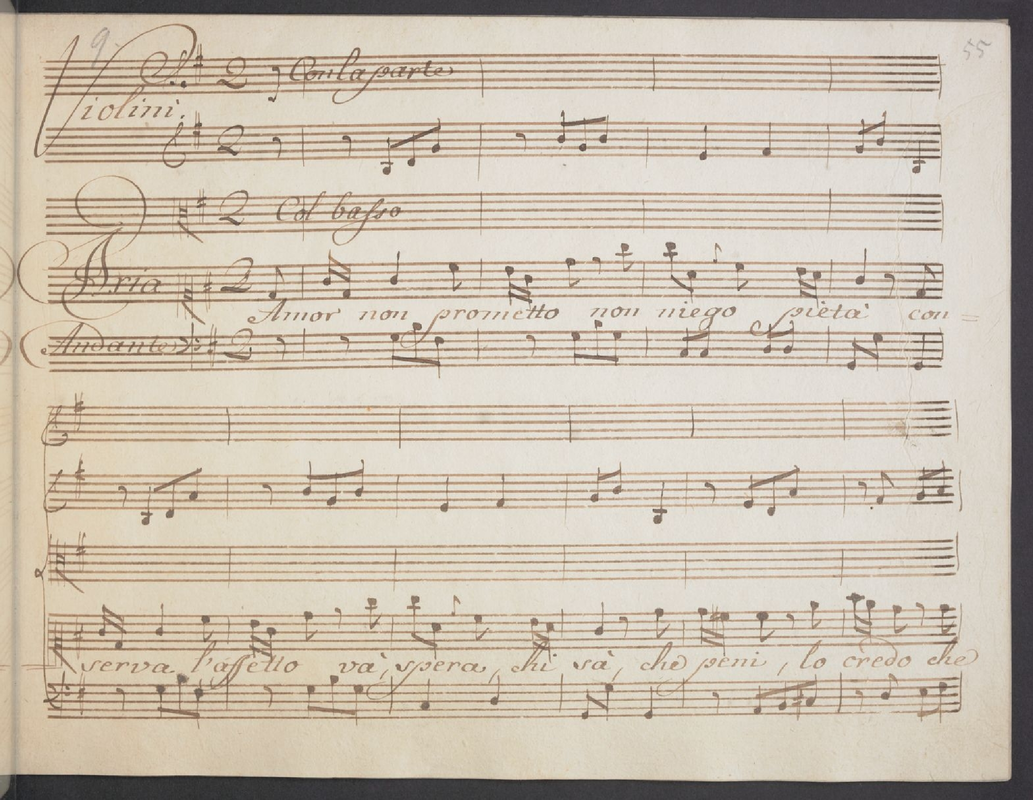 9.
55
2 Con la parte
Violini.
2
2 Col basso
Aria 2
Amor non prometto non niego pietà con=
Andante 2
serva l'affetto và, spera, chi sà, che peni, lo credo che